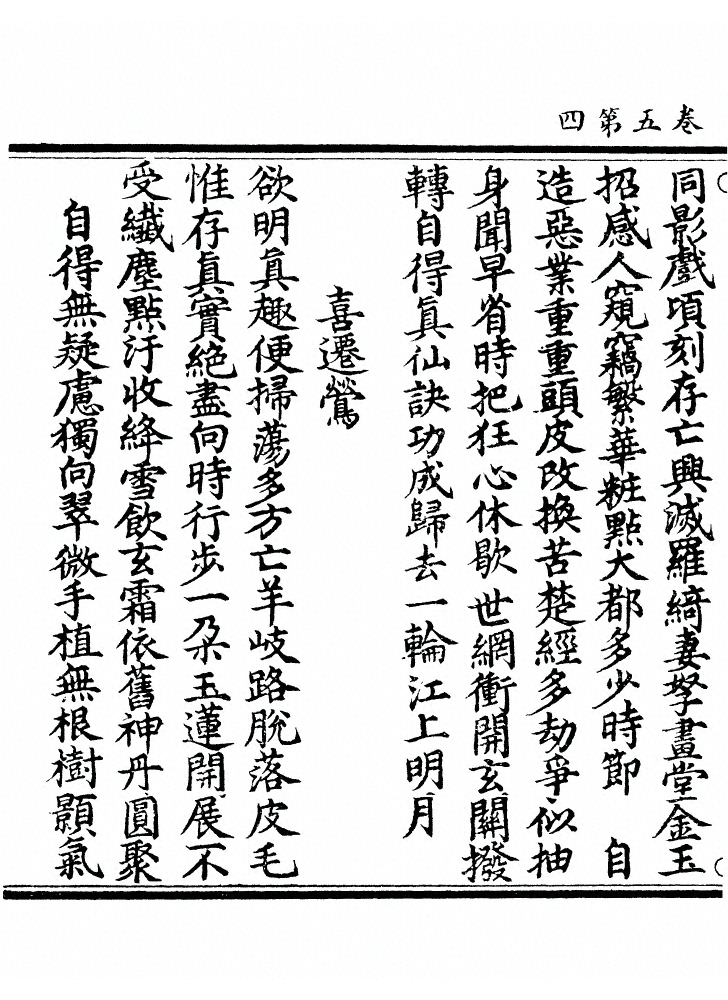 卷五第四
同影戲頃刻存亡興滅羅綺妻孥畫堂金玉
招感人窺竊繫華粧點大都多少時節　自
造惡業重重頭皮改換苦楚經多劫爭似抽
身聞早省時把狂心休歇世網衝開玄關撥
轉自得眞仙訣功成歸去一輪江上明月
喜遷鶯
欲明眞趣便掃蕩多方亡羊岐路脫落皮毛
惟存眞實絕盡向時行步一朶玉蓮開展不
受纎塵點汙收絳雪飲玄霜依舊神丹圓聚
自得無疑慮獨向翠微手植無根樹顥氣